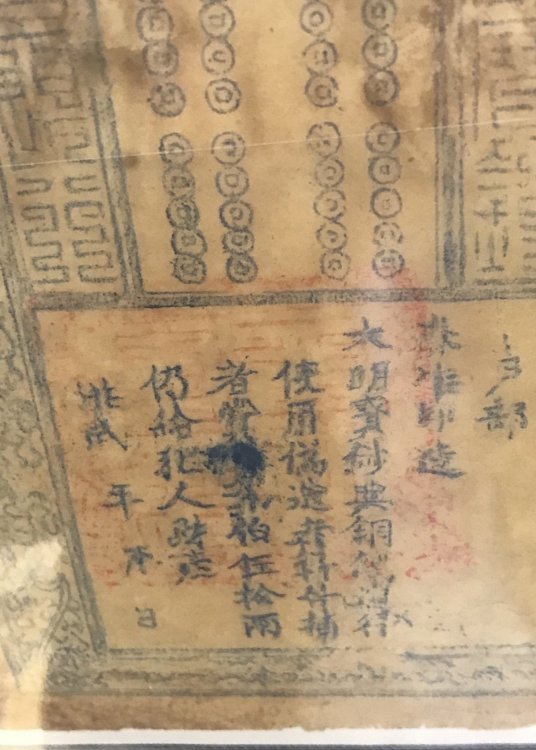 户部
奏准印造
大明寶鈔與銅錢通行
使用偽造者斬告捕
者賞伯伍拾兩
仍給犯人財產
洪武 年 月 日